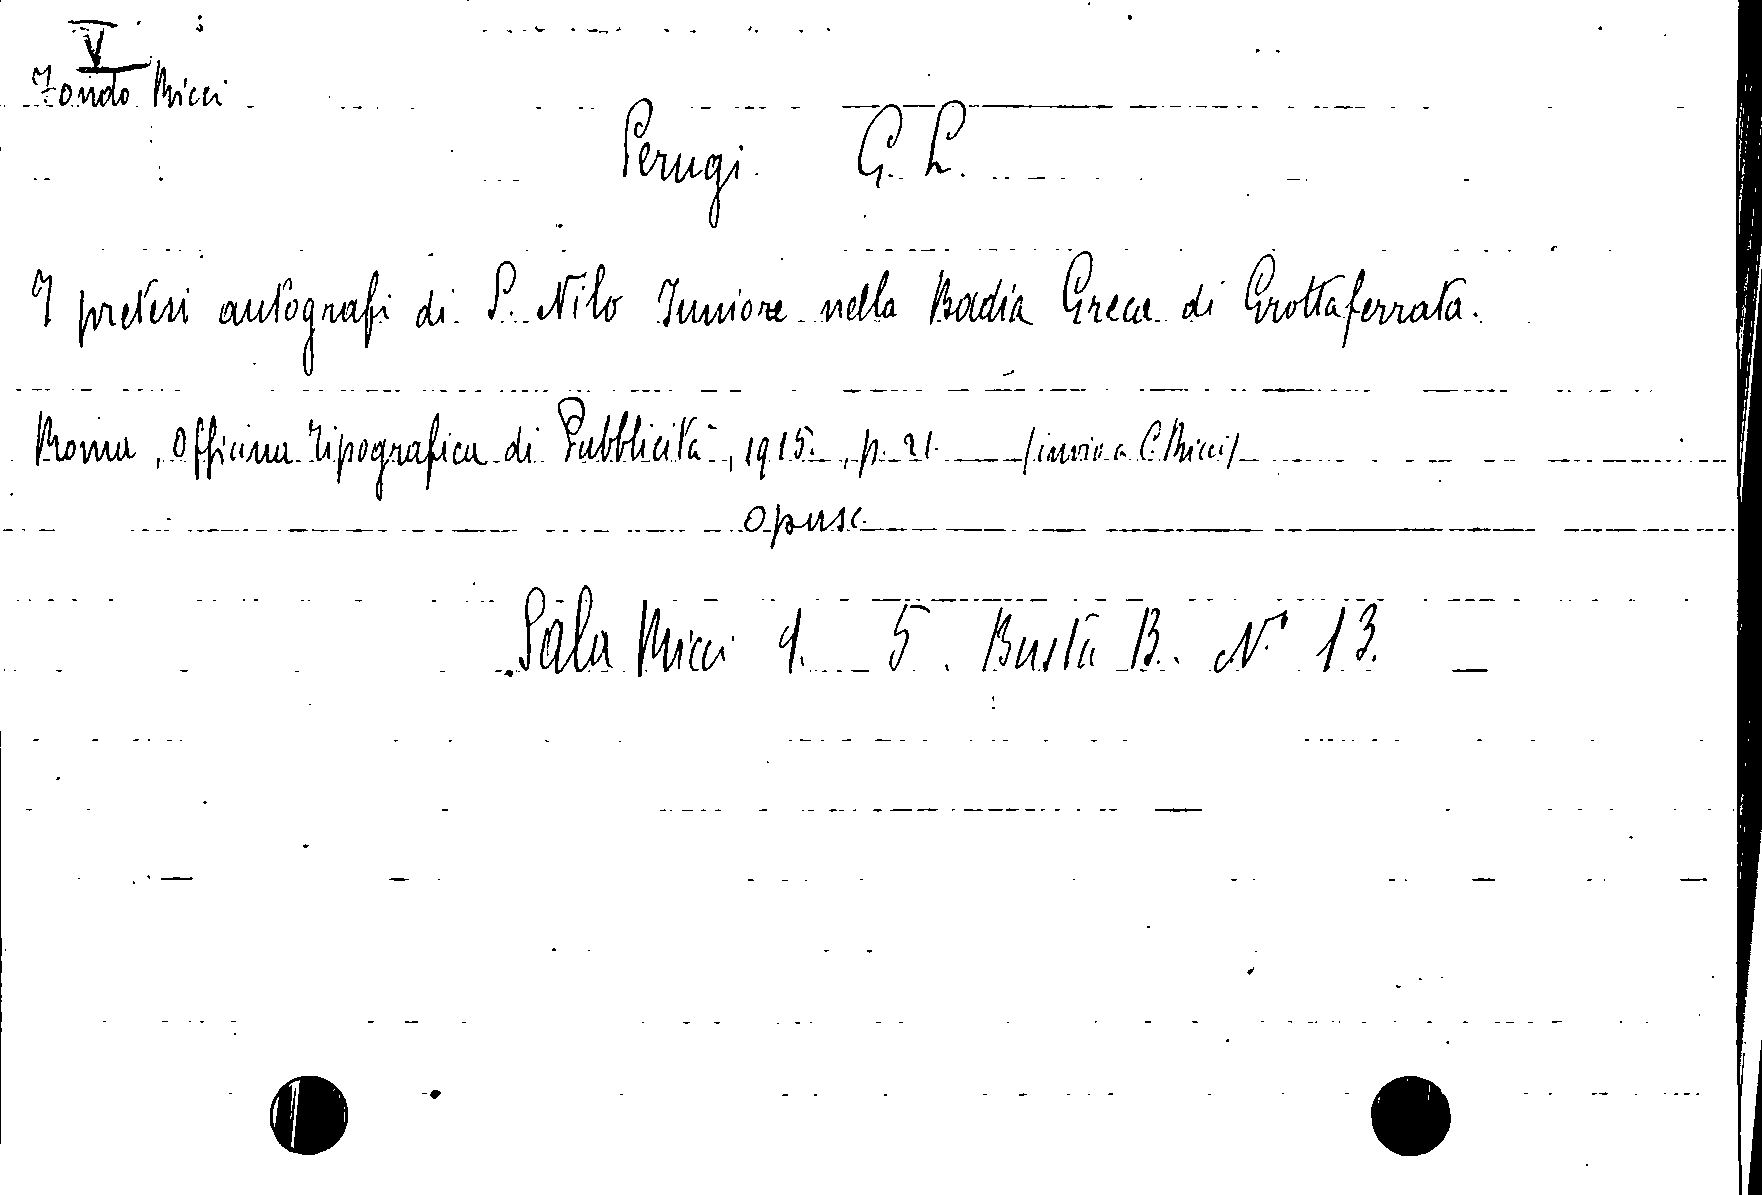 V
Fondo Ricci
Perugi G. L.
I pretesi autografi di S. Nilo Iuniore nella Badia Greca di Grottaferrata.
Roma, Officina Tipografica di Pubblicità, 1915., p. 21. (invio a C. Ricci)
opusc.
Sala Ricci 9. 5. Busta B. N° 13.